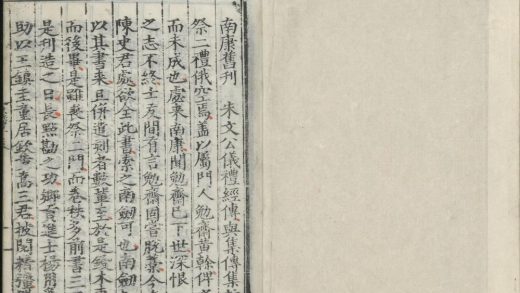 南康舊刊 朱文公儀禮經傳與集傳集
祭二禮俄空焉蓋以屬門人勉齋黄榦俾
而未成也虙來南康聞勉齋已下世深恨
之志不終士友間有言勉齋固嘗脫藁今
陳史君處欲全此書索之南劒可也南劒
以其書來且併遣刻者數輩至於是鋟木
而後畢是雖喪祭二門而卷秩多前書三
是刊造之日長點勘之功鄉貢進士楊
助以三君披閱精